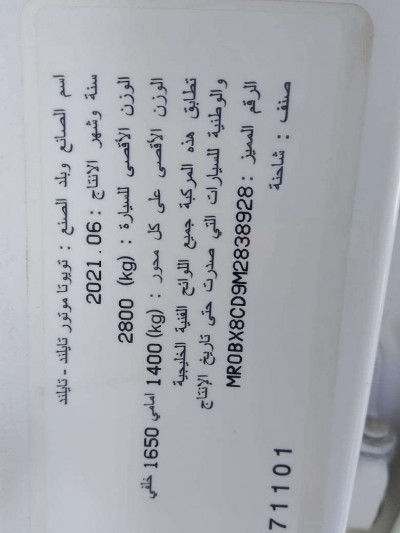 اسم الصانع وبلد الصنع : تويوتا موتور تايلند - تايلند
سنة وشهر الانتاج : 2021.06
الوزن الأقصى للسيارة : (kg) 2800
الوزن الأقصى على كل محور : (kg) 1400 امامي 1650 خلفي
تطابق هذه المركبة جميع اللوائح الفنية الخليجية
والوطنية للسيارات التي صدرت حتى تاريخ الإنتاج
الرقم المميز : MR0BX8CD9M2838928
صنف : شاحنة
71101